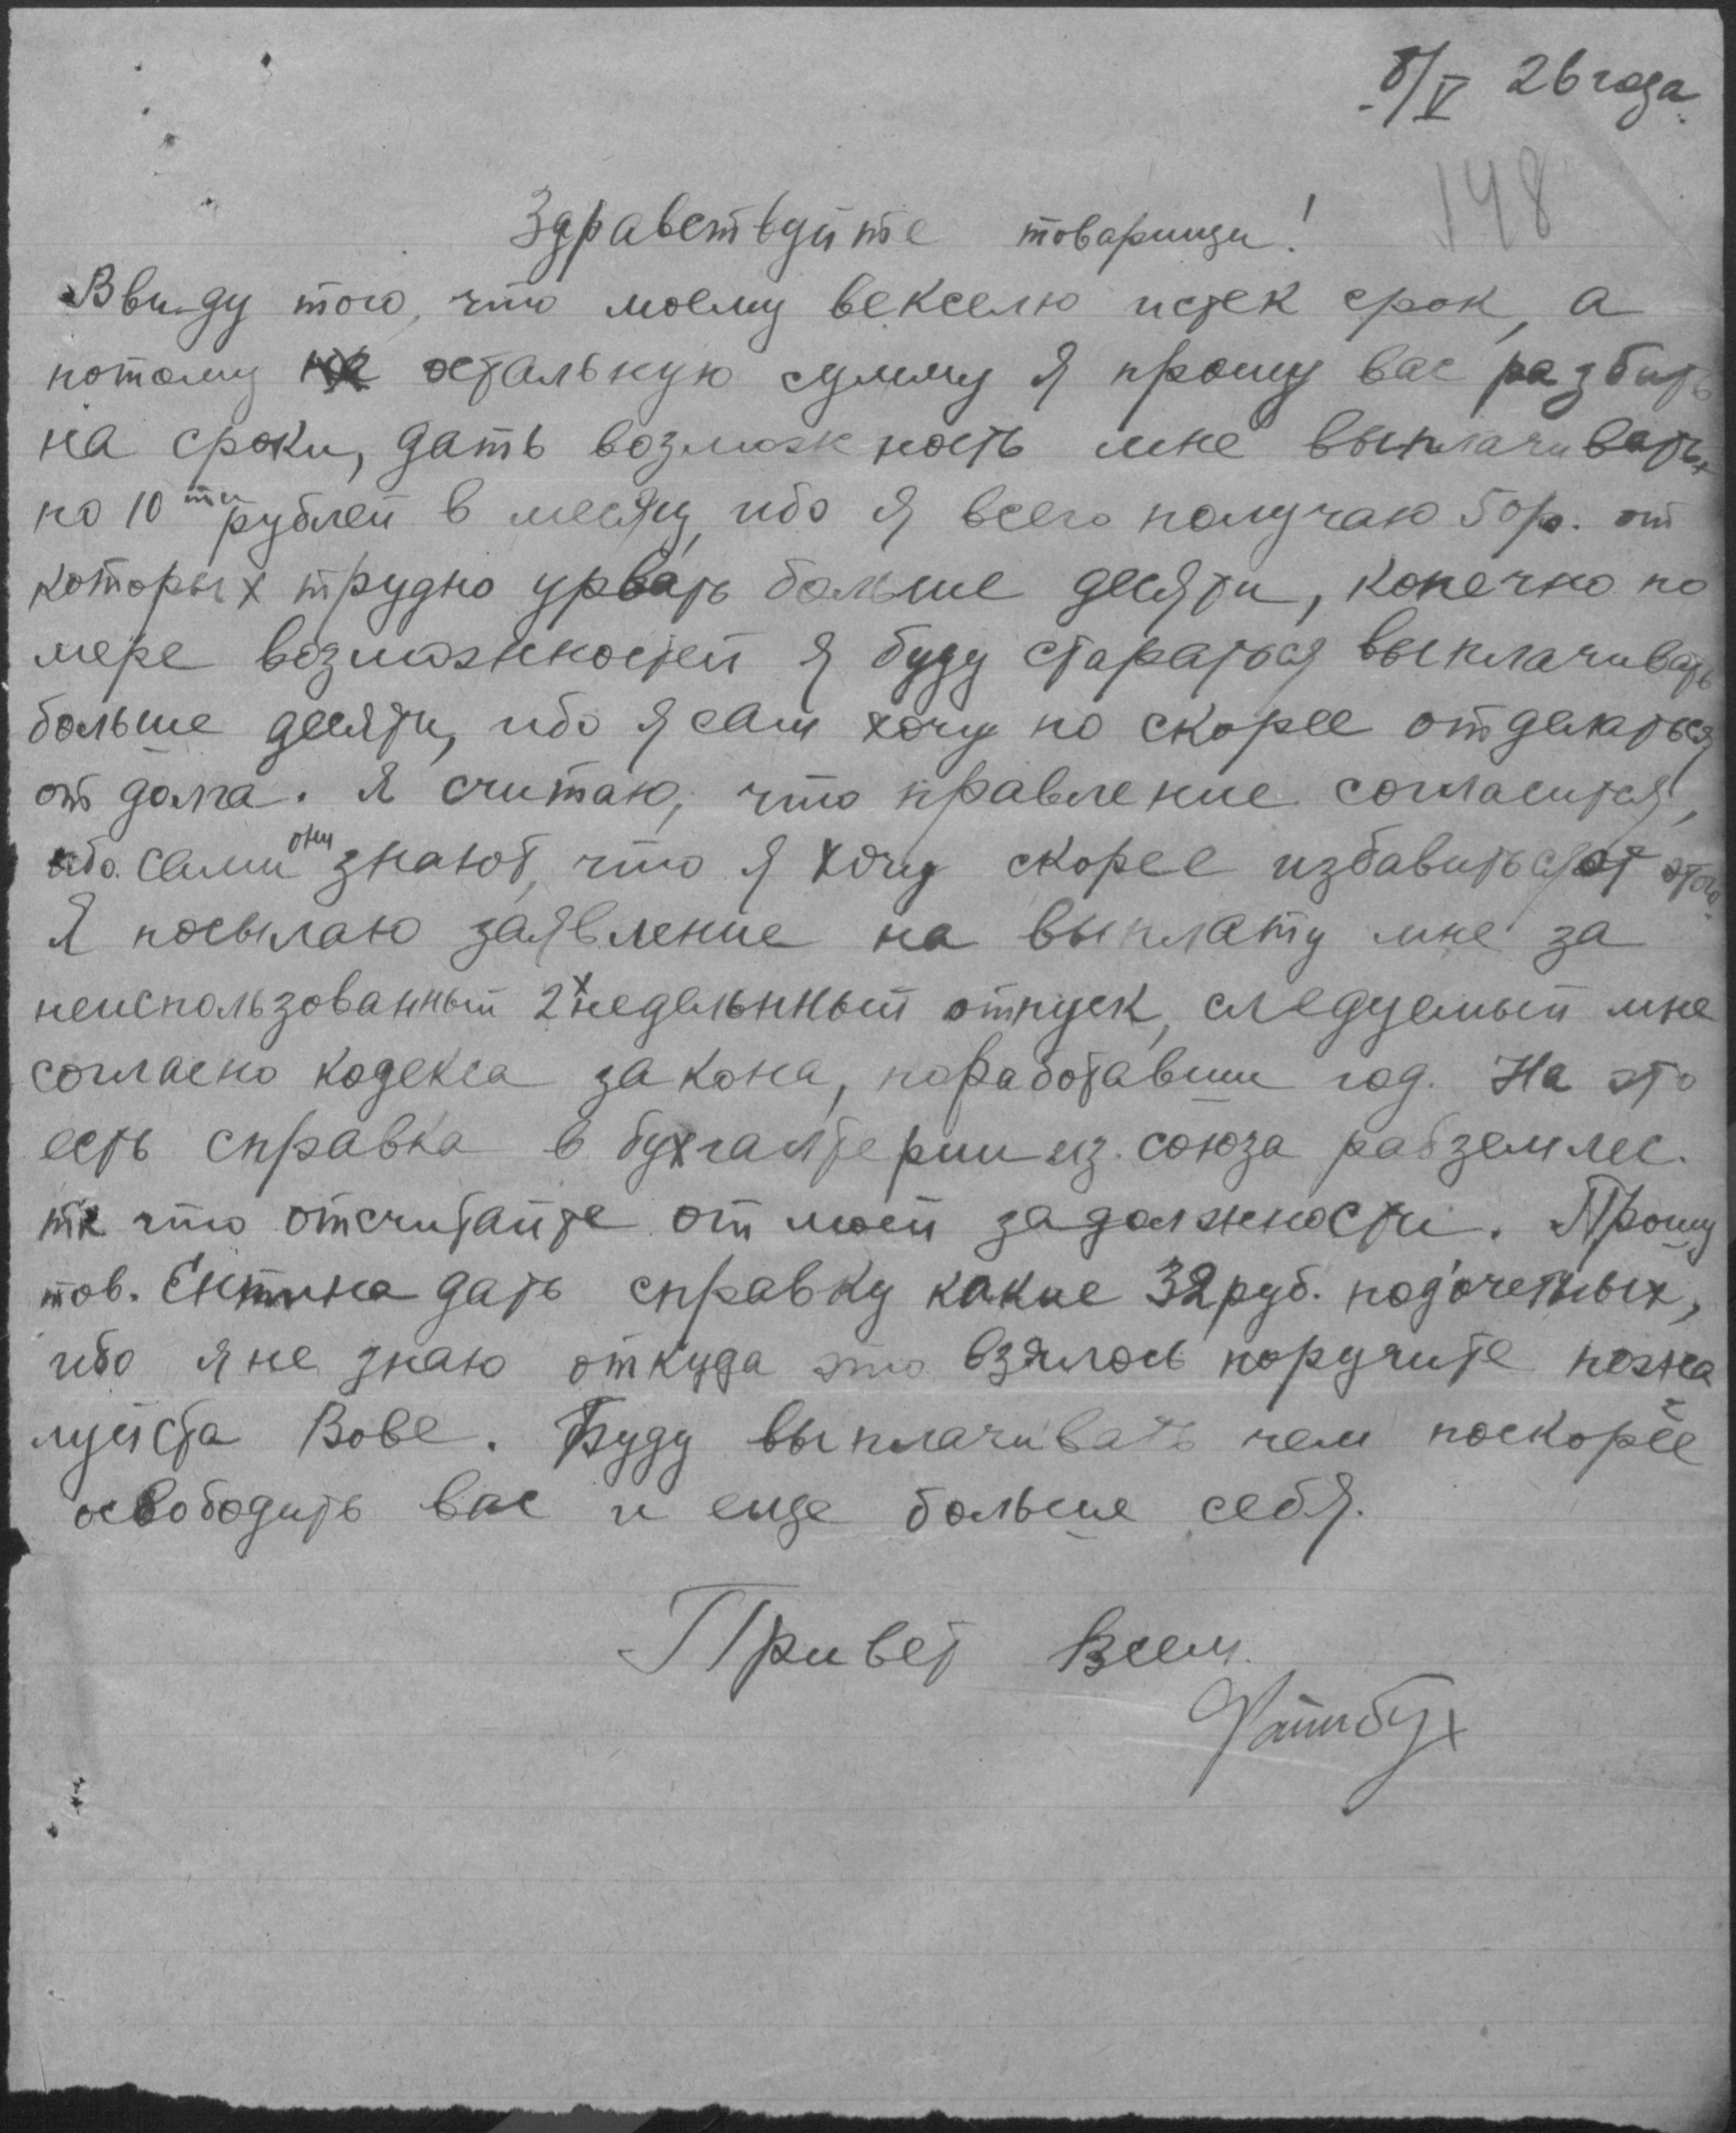 8/V 26 года
148
Здравствуйте товарищи!
Ввиду того, что моему векселю истек срок, а
потому остальную сумму я прошу вас разбить
на сроки, дать возможность мне выплачивать
по 10 ти рублей в месяц, ибо я всего получаю 50 р. от
которых трудно урвать больше десяти, конечно по
мере возможностей я буду стараться выплачивать
больше десяти, ибо я сам хочу по скорее отделаться
от долга. Я считаю, что правление согласится,
ибо сами они знают, что я хочу скорее избавиться от этого.
Я посылаю заявление на выплату мне за
неиспользованный 2х недельнный отпуск, следуемый мне
согласно кодекса закона, поработавши год. На это
есть справка в бухгалтерии из союза рабземлес.
так что отсчитайте от моей задолжности. Прошу
тов. Ентина дать справку какие 32 руб. подочетных,
ибо я не знаю откуда это взялось поручите пожа
луйста Вове. Буду выплачивать чем поскорее
освободить вас и еще больше себя.
Привет Всем.